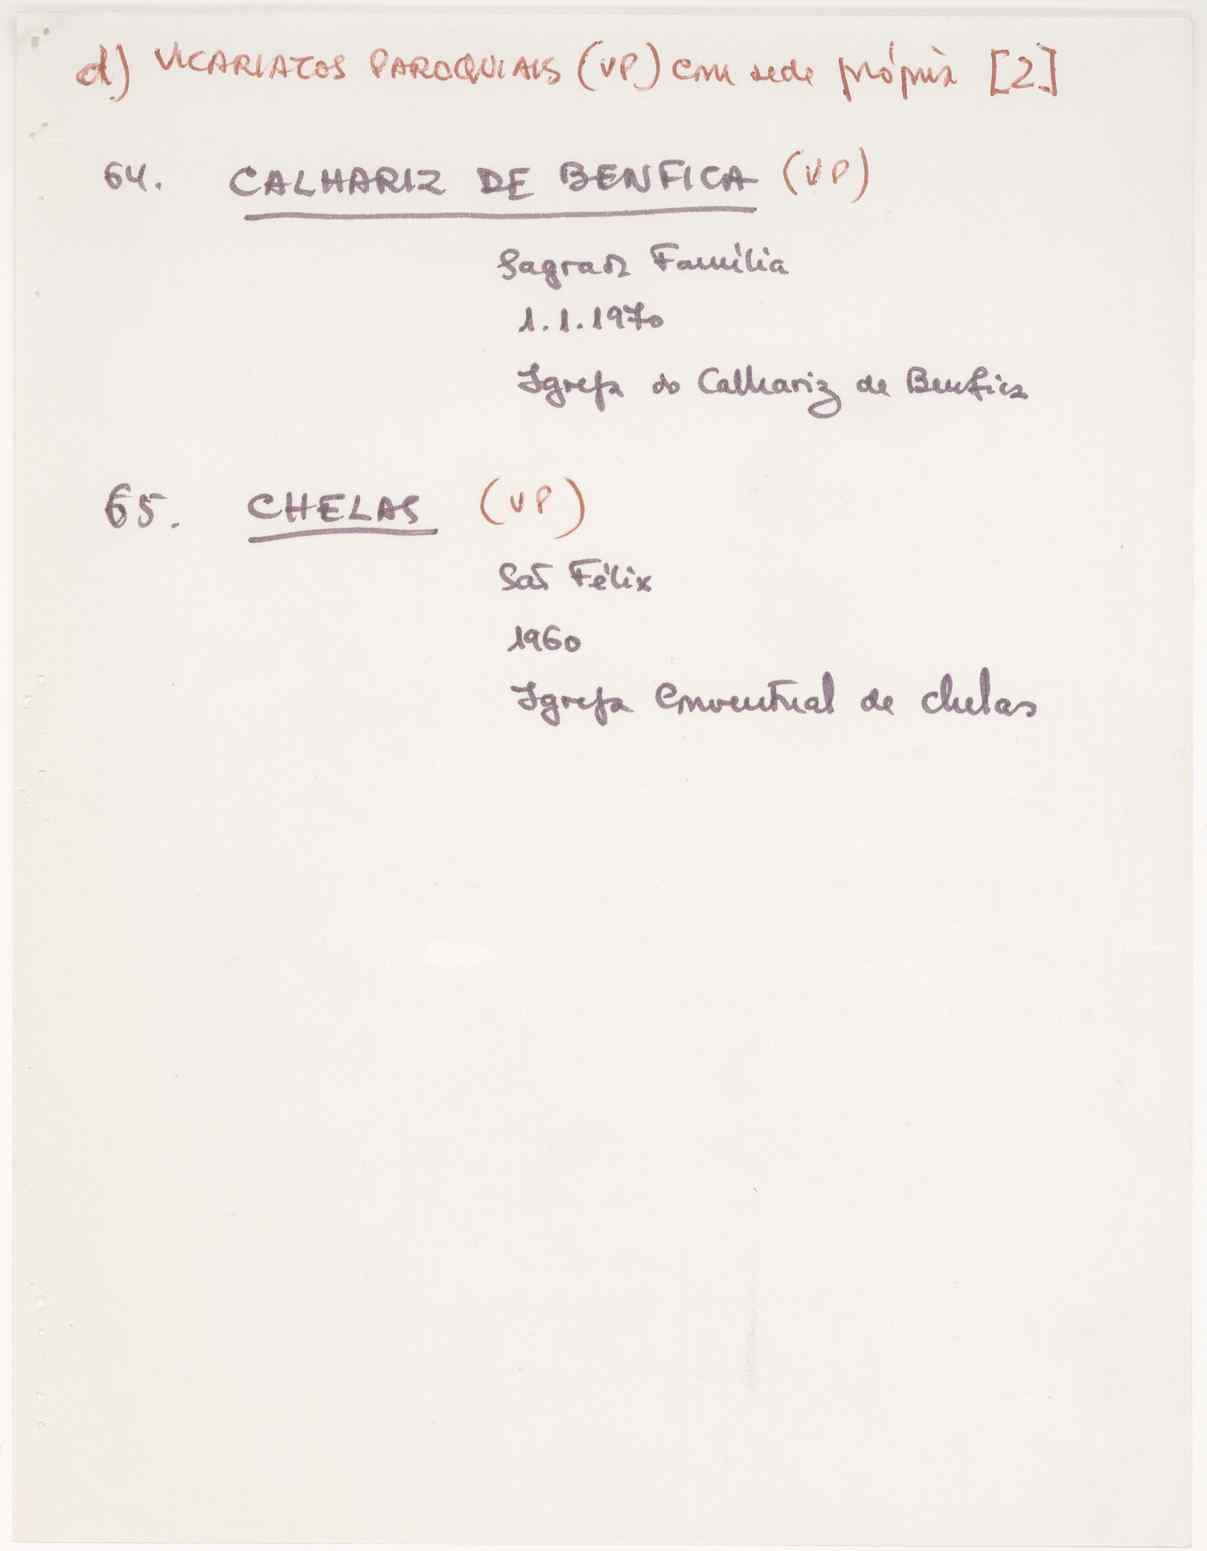 d) VICARIATOS PAROQUIAIS (VP) com sede própria [2]
64. CALHARIZ DE BENFICA (VP)
Sagrada Família
1.1.1970
Igreja do Calhariz de Benfica
65. CHELAS (VP)
São Félix
1960
Igreja Conventual de Chelas